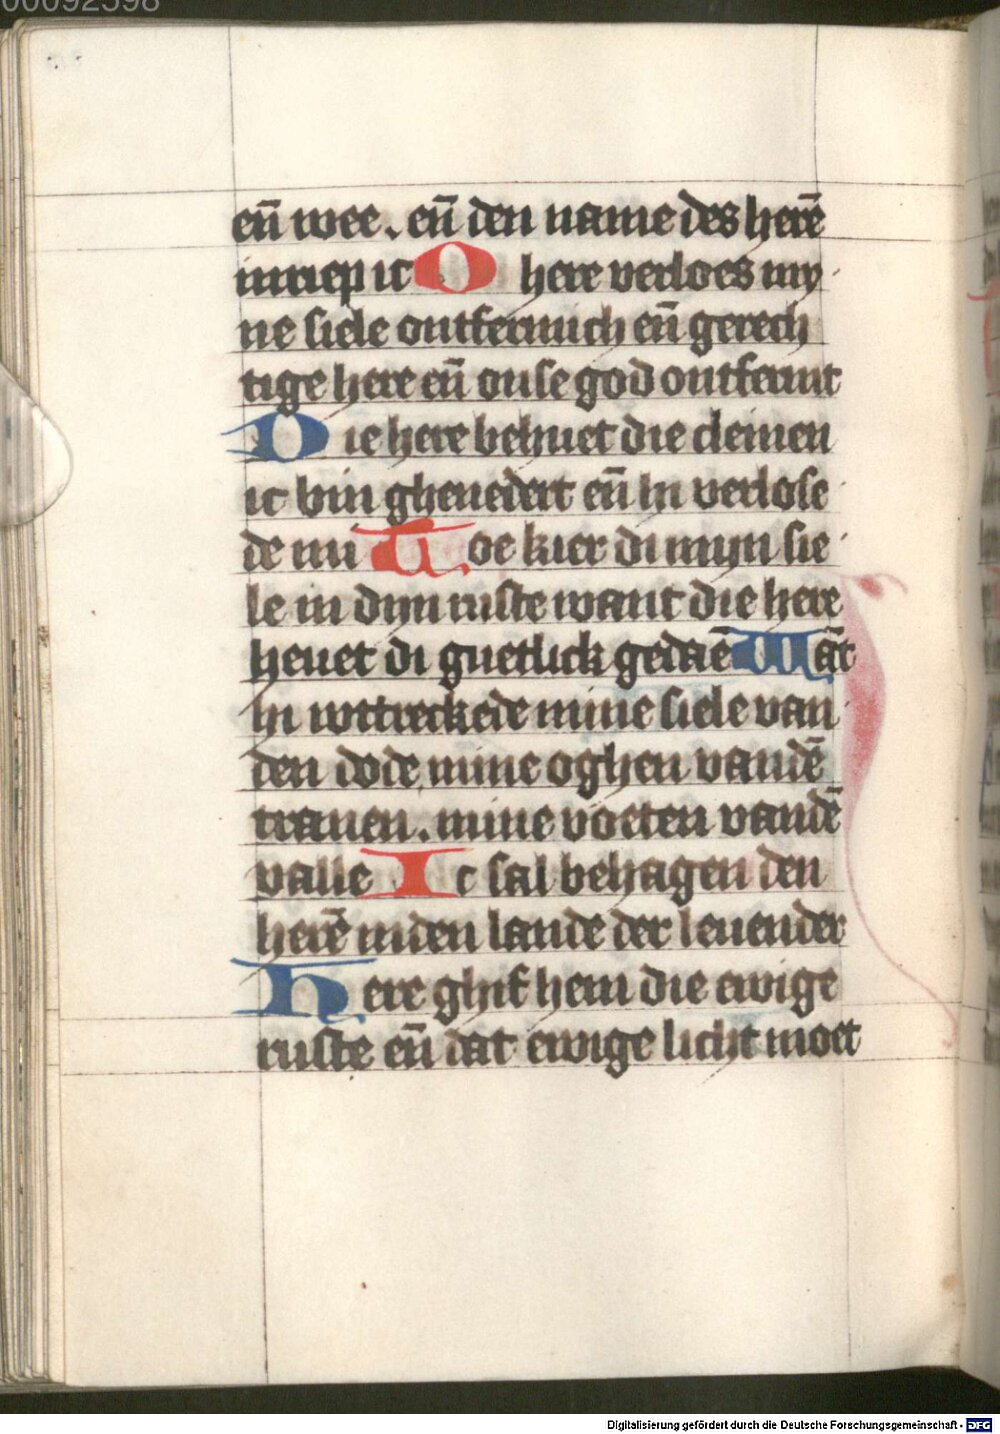 00092598
eñ wee. eñ den name des herē
inriep ic O here verloes my
ne siele ontfermich eñ gerech
tige here eñ onse god ontfermt
Die here behuet die cleinen
ic bin ghenedert eñ hi verlose
de mi Toe kier di mijn sie
le in dijn ruste want die here
heuet di guetlick gedaē Wāt
hi wttreckede mine siele van
den dode mine oghen vandē
tranen. mine voeten vandē
valle Ic sal behagen den
herē inden lande der leuender
Here ghif hem die ewige
ruste eñ dat ewige licht moet
Digitalisierung gefördert durch die Deutsche Forschungsgemeinschaft - DFG